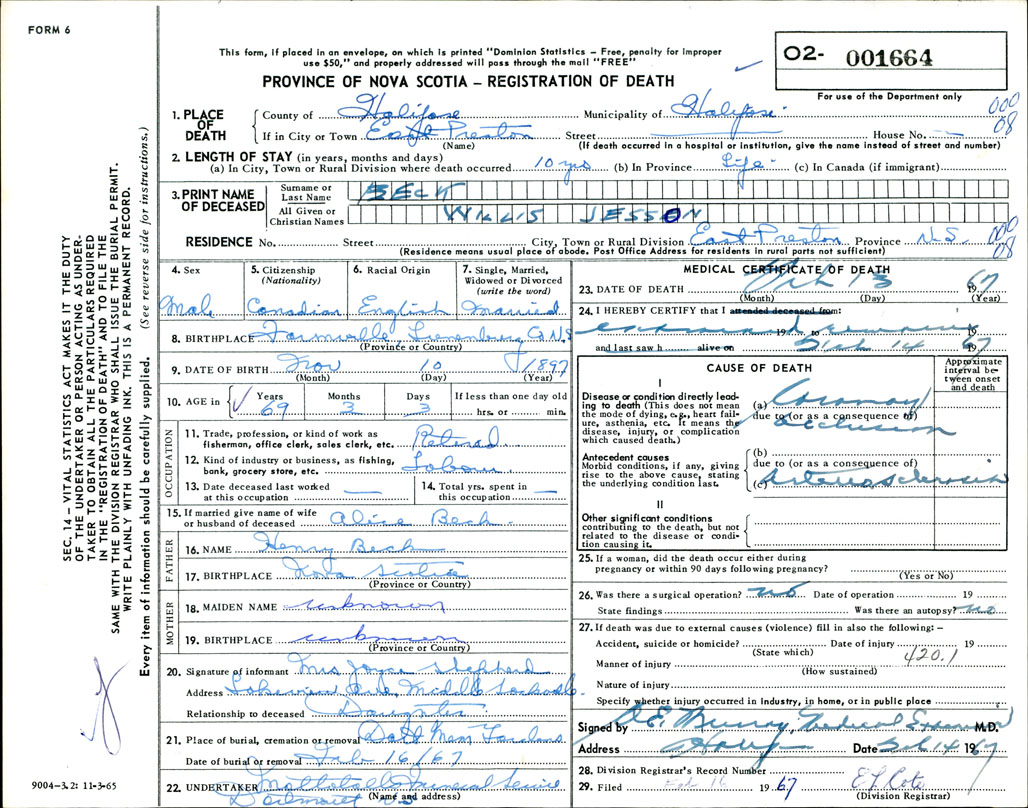 FORM 6
This form, if placed in an envelope, on which is printed "Dominion Statistics – Free, penalty for improper
use $50," and properly addressed will pass through the mail "FREE"
O2- 001664
PROVINCE OF NOVA SCOTIA – REGISTRATION OF DEATH
For use of the Department only
000
08
1. PLACE OF DEATH
County of Halifax Municipality of Halifax
If in City or Town East Preston Street House No.
(Name) (If death occurred in a hospital or institution, give the name instead of street and number)
2. LENGTH OF STAY (in years, months and days)
(a) In City, Town or Rural Division where death occurred 10 yrs (b) In Province Life (c) In Canada (if immigrant)
3. PRINT NAME OF DECEASED
Surname or Last Name BECK
All Given or Christian Names WILLIS JESSON
RESIDENCE No. Street City, Town or Rural Division East Preston Province N.S.
000
08
(Residence means usual place of abode. Post Office Address for residents in rural parts not sufficient)
4. Sex Male
5. Citizenship (Nationality) Canadian
6. Racial Origin English
7. Single, Married, Widowed or Divorced (write the word) Married
8. BIRTHPLACE Lunenburg Co N.S.
(Province or Country)
9. DATE OF BIRTH Nov 10 1897
(Month) (Day) (Year)
10. AGE in Years 69 Months 3 Days 3 If less than one day old hrs. or min.
OCCUPATION
11. Trade, profession, or kind of work as fisherman, office clerk, sales clerk, etc. Retired
12. Kind of industry or business, as fishing, bank, grocery store, etc. Labour
13. Date deceased last worked at this occupation
14. Total yrs. spent in this occupation
15. If married give name of wife or husband of deceased Alice Beck
FATHER
16. NAME Henry Beck
17. BIRTHPLACE Nova Scotia
(Province or Country)
MOTHER
18. MAIDEN NAME unknown
19. BIRTHPLACE unknown
(Province or Country)
20. Signature of informant Mrs Joyce Shepherd
Address Lakeview Middle Sackville
Relationship to deceased Daughter
21. Place of burial, cremation or removal Dart Mem Gardens
Date of burial or removal Feb 16/67
22. UNDERTAKER Funeral Service
Dartmouth NS
(Name and address)
MEDICAL CERTIFICATE OF DEATH
23. DATE OF DEATH Feb 13 1967
(Month) (Day) (Year)
24. I HEREBY CERTIFY that I attended deceased from:
examined remains 19 to 19
and last saw h alive on Feb 14 1967
CAUSE OF DEATH
Approximate interval between onset and death
I
Disease or condition directly leading to death (This does not mean the mode of dying, e.g., heart failure, asthenia, etc. It means the disease, injury, or complication which caused death.)
(a) Coronary
due to (or as a consequence of)
Occlusion
Antecedent causes
Morbid conditions, if any, giving rise to the above cause, stating the underlying condition last.
(b)
due to (or as a consequence of)
(c) Arteriosclerosis
II
Other significant conditions
contributing to the death, but not related to the disease or condition causing it.
25. If a woman, did the death occur either during
pregnancy or within 90 days following pregnancy?
(Yes or No)
26. Was there a surgical operation? no Date of operation 19
State findings Was there an autopsy? no
27. If death was due to external causes (violence) fill in also the following:–
Accident, suicide or homicide? Date of injury 19
(State which)
420.1
Manner of injury
(How sustained)
Nature of injury
Specify whether injury occurred in industry, in home, or in public place
Signed by Murray, Medical Examiner M.D.
Address Halifax Date Feb 14 1967
28. Division Registrar's Record Number
29. Filed Feb 16 1967 Cote
(Division Registrar)
SEC. 14 – VITAL STATISTICS ACT MAKES IT THE DUTY
OF THE UNDERTAKER OR PERSON ACTING AS UNDER-
TAKER TO OBTAIN ALL THE PARTICULARS REQUIRED
IN THE "REGISTRATION OF DEATH" AND TO FILE THE
SAME WITH THE DIVISION REGISTRAR WHO SHALL ISSUE THE BURIAL PERMIT.
WRITE PLAINLY WITH UNFADING INK. THIS IS A PERMANENT RECORD.
Every item of information should be carefully supplied. (See reverse side for instructions.)
9004-3.2: 11-3-65